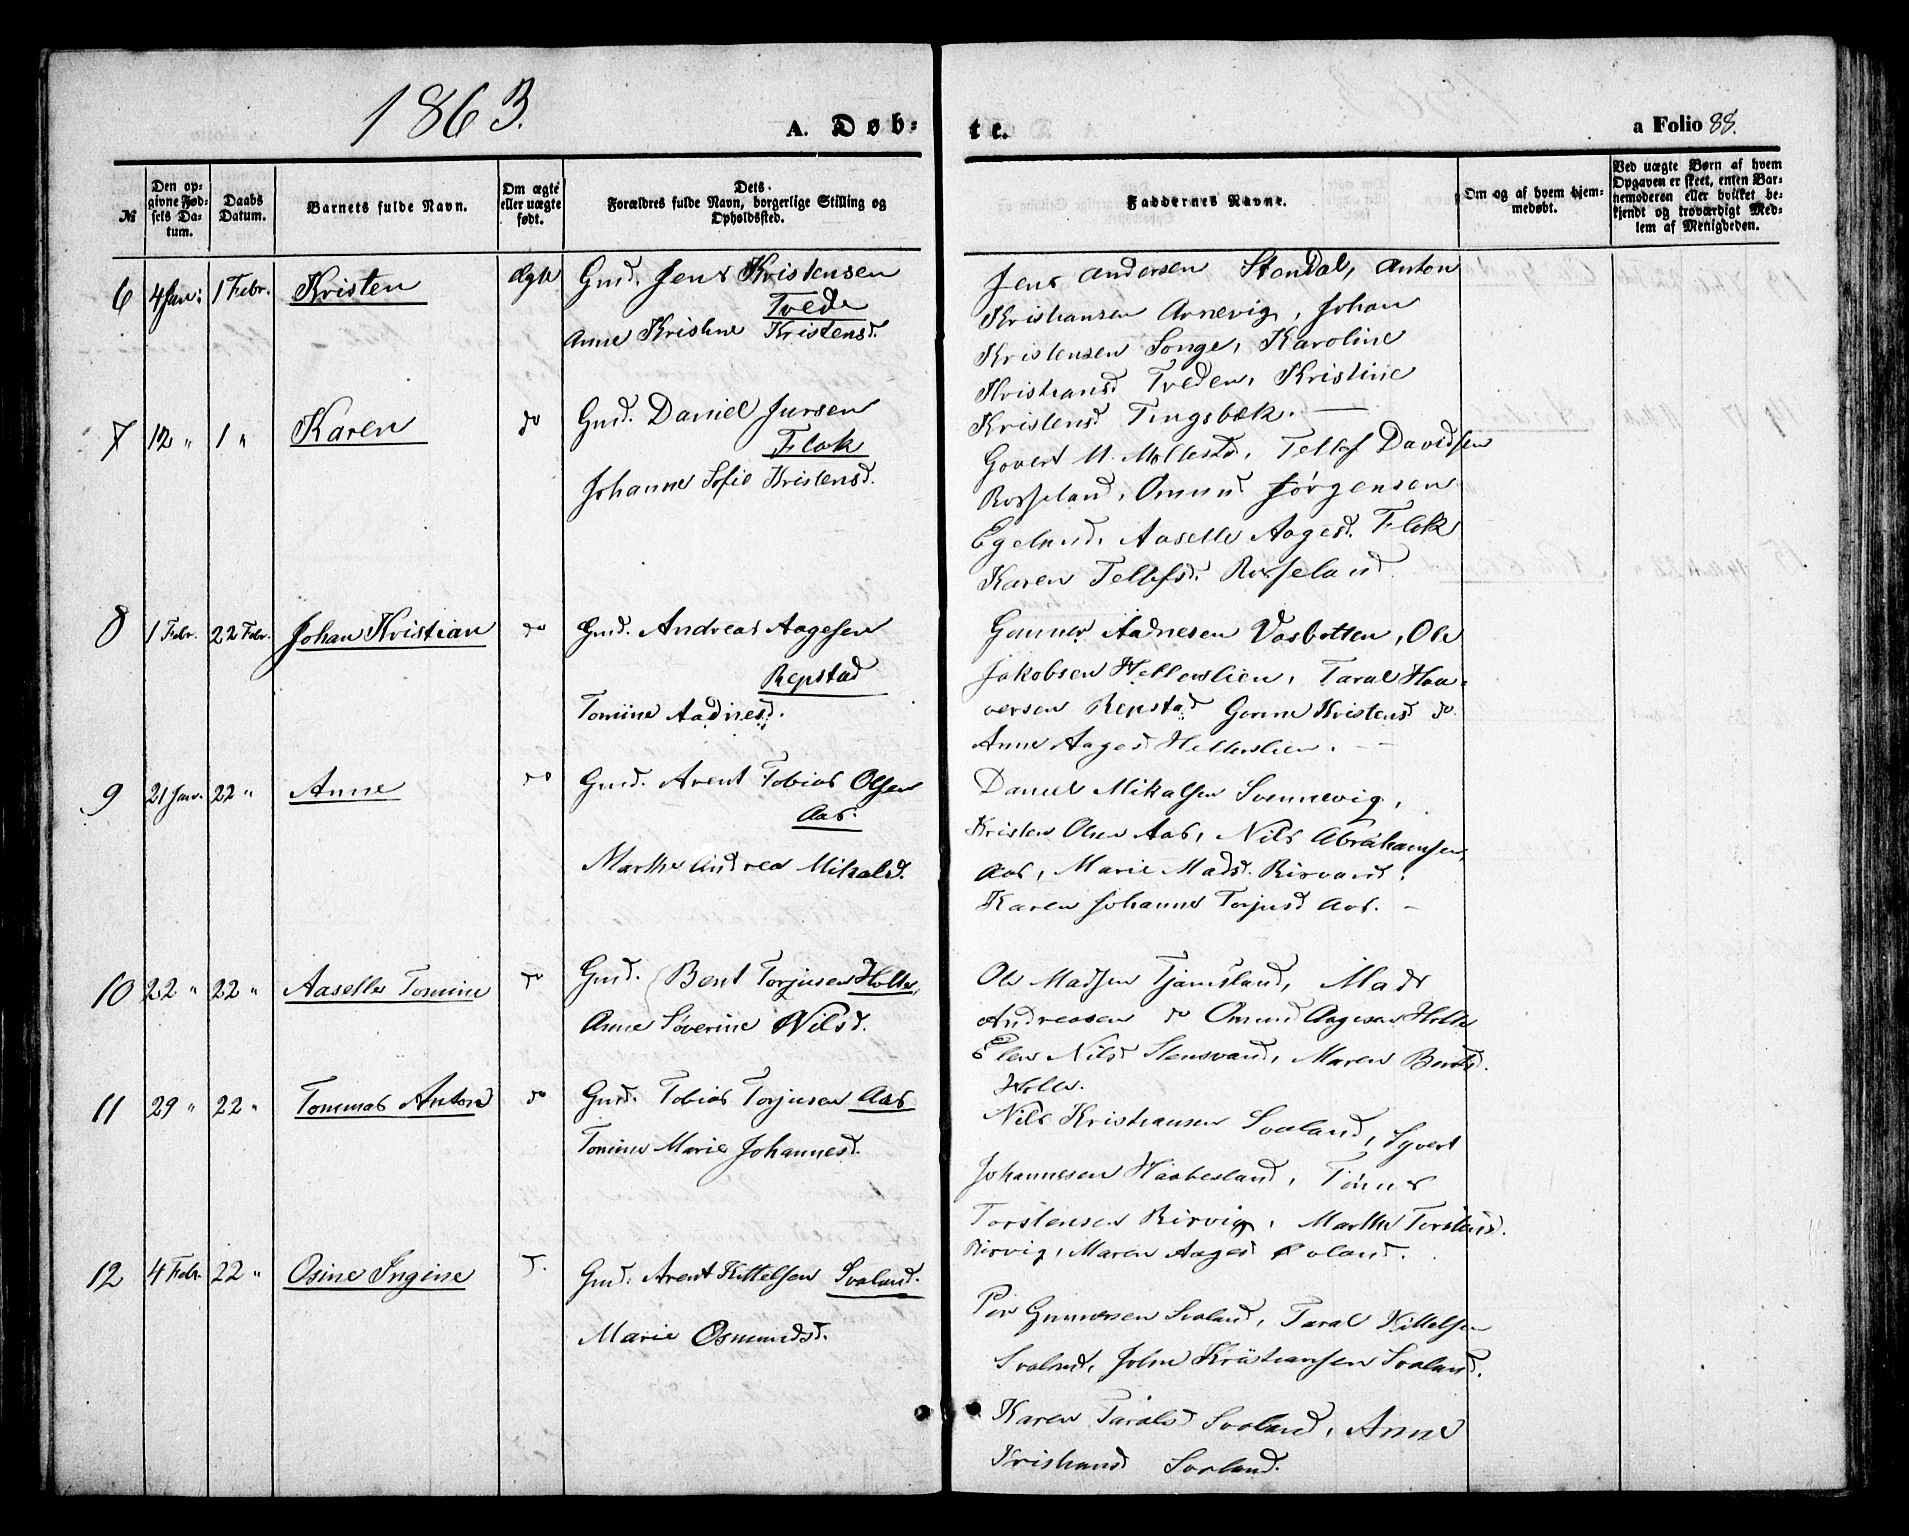 1863.
A. Døb-
te.
a Folio 88.
№
Den op-
givne Fød-
sels Da-
tum.
Daabs
Datum.
Barnets fulde Navn.
Om ægte
eller uægte
født.
Dets.
Forældres fulde Navn, borgerlige Stilling og
Opholdssted.
Faddernes Navne.
Om og af hvem hjem-
medøbt.
Ved uægte Børn af hvem
Opgaven er skeet, enten Bar-
nemoderen eller hvilket be-
kjendt og troværdigt Med-
lem af Menigheden.
6 4 Jan: 1 Febr. Kristen Ægte Gmd. Jens Kristensen
Tvede
Anne Kristine Kristensd.
Jens Andersen Stendal, Anton
Kristiansen Arnevig, Johan
Kristensen Songe, Karoline
Kristiansd Tveden, Kristine
Kristensd Tingsbæk. —
7 12 " 1 " Karen do Gmd. Daniel Jursen
Flak
Johanne Sofie Kristensd.
Govert M. Mollestd, Tellef Davidsen
Rosseland, Omund Jørgensen
Egelund, Aaselle Aagesd. Flak
Karen Tellefsd. Rosseland.
8 1 Febr. 22 Febr. Johan Kristian do Gmd. Andreas Aagesen
Repstad
Tomine Aadnesd.
Gunner Aadnesen Vasbotten, Ole
Jakobsen Hellerslien, Taral Haa-
versen Repstad Gurine Kristensd do.
Anne Aagesd Hellerslien. —
9 21 Jan. 22 " Anne do Gmd. Arent Tobias Olsen
Aas.
Marthe Andrea Mikalsd.
Daniel Mikalsen Svennevig,
Kristen Olsen Aas, Nils Abrahamsen,
Aas, Marie Madsd. Birvand,
Karen Johanne Torjusd Aas. —
10 22 " 22 " Aaselle Tomine do Gmd. Bent Torjusen Holte,
Anne Søverine Nilsd.
Ole Madsen Tjamsland, Mads
Andreasen do Omund Aagesen Holte
Elen Nilsd Stensvand, Maren Bentsd.
Holte.
11 29 " 22 " Tommas Anton do Gmd. Tobias Torjusen Aas
Tomine Marie Johannesd.
Nils Kristiansen Svaland, Syvert
Johannesen Haabesland, Tønnes
Torstensen Birvig, Marthe Torstensd.
Birvig, Maren Aagesd Roland.
12 4 Febr. 22 " Osine Ingine d. Gmd. Arent Kittelsen Svaland.
Marie Osmundsd.
Per Gunnersen Svaland, Taral Kittelsen
Svaland, John Kristiansen Svaland.
Karen Taralsd Svaland, Anne
Kristiansd Svaland.